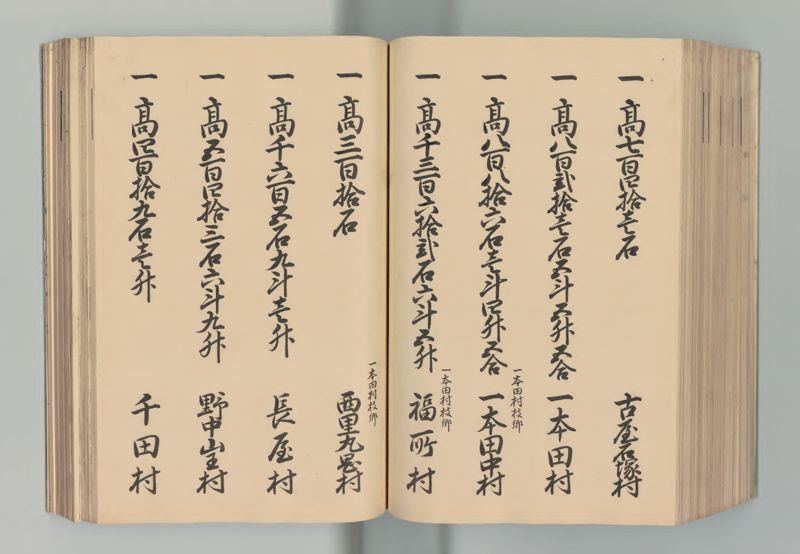 一高七百四拾壱石 古屋石塚村
一高八百弐拾壱石五斗五升五合 一本田村
一本田村枝郷
一高八百八拾六石壱斗四升五合 一本田中村
一本田村枝郷
一高千三百六拾弐石六斗五升 福所村
一本田村枝郷
一高三百拾石 西里丸岡村
一高千六百五石九斗壱升 長屋村
一高五百四拾三石六斗九升 野中山王村
一高四百拾九石壱升 千田村